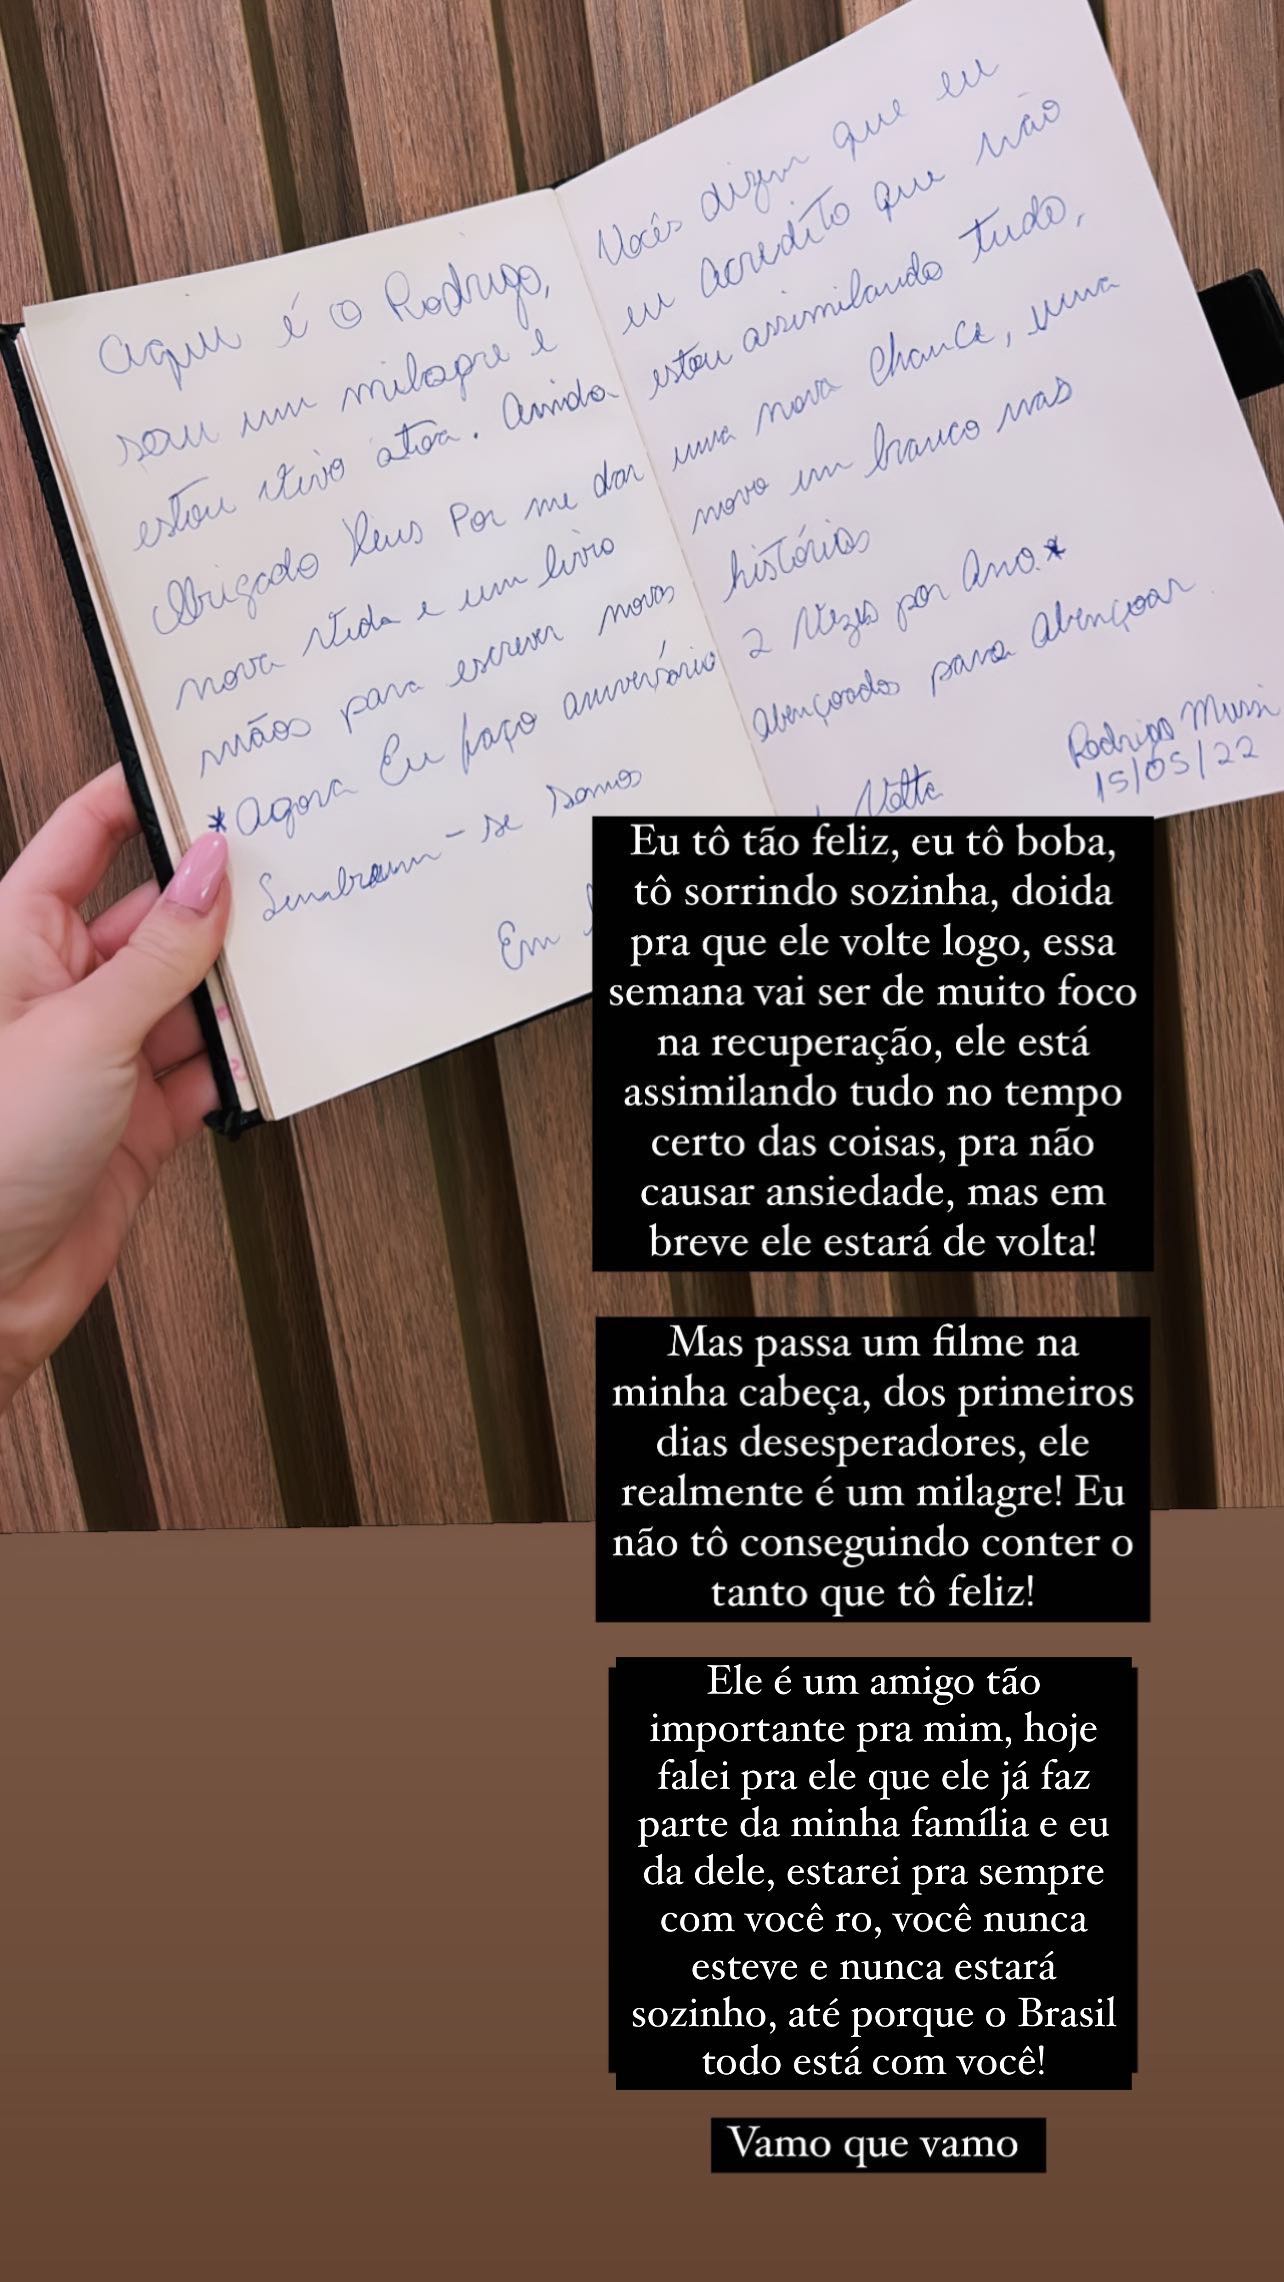 Aqui é o Rodrigo, Vocês dizem que eu
sou um milagre e eu acredito que não
estou vivo atoa. Ainda estou assimilando tudo,
Obrigado Deus Por me dar uma nova chance, uma
nova vida e um livro novo em branco nas
mãos para escrever novas histórias
*Agora Eu faço aniversário 2 Vezes por Ano.*
Lembrem-se somos abençoados para Abençoar.
Rodrigo Mussi
15/05/22
Em Volta
Eu tô tão feliz, eu tô boba,
tô sorrindo sozinha, doida
pra que ele volte logo, essa
semana vai ser de muito foco
na recuperação, ele está
assimilando tudo no tempo
certo das coisas, pra não
causar ansiedade, mas em
breve ele estará de volta!
Mas passa um filme na
minha cabeça, dos primeiros
dias desesperadores, ele
realmente é um milagre! Eu
não tô conseguindo conter o
tanto que tô feliz!
Ele é um amigo tão
importante pra mim, hoje
falei pra ele que ele já faz
parte da minha família e eu
da dele, estarei pra sempre
com você ro, você nunca
esteve e nunca estará
sozinho, até porque o Brasil
todo está com você!
Vamo que vamo